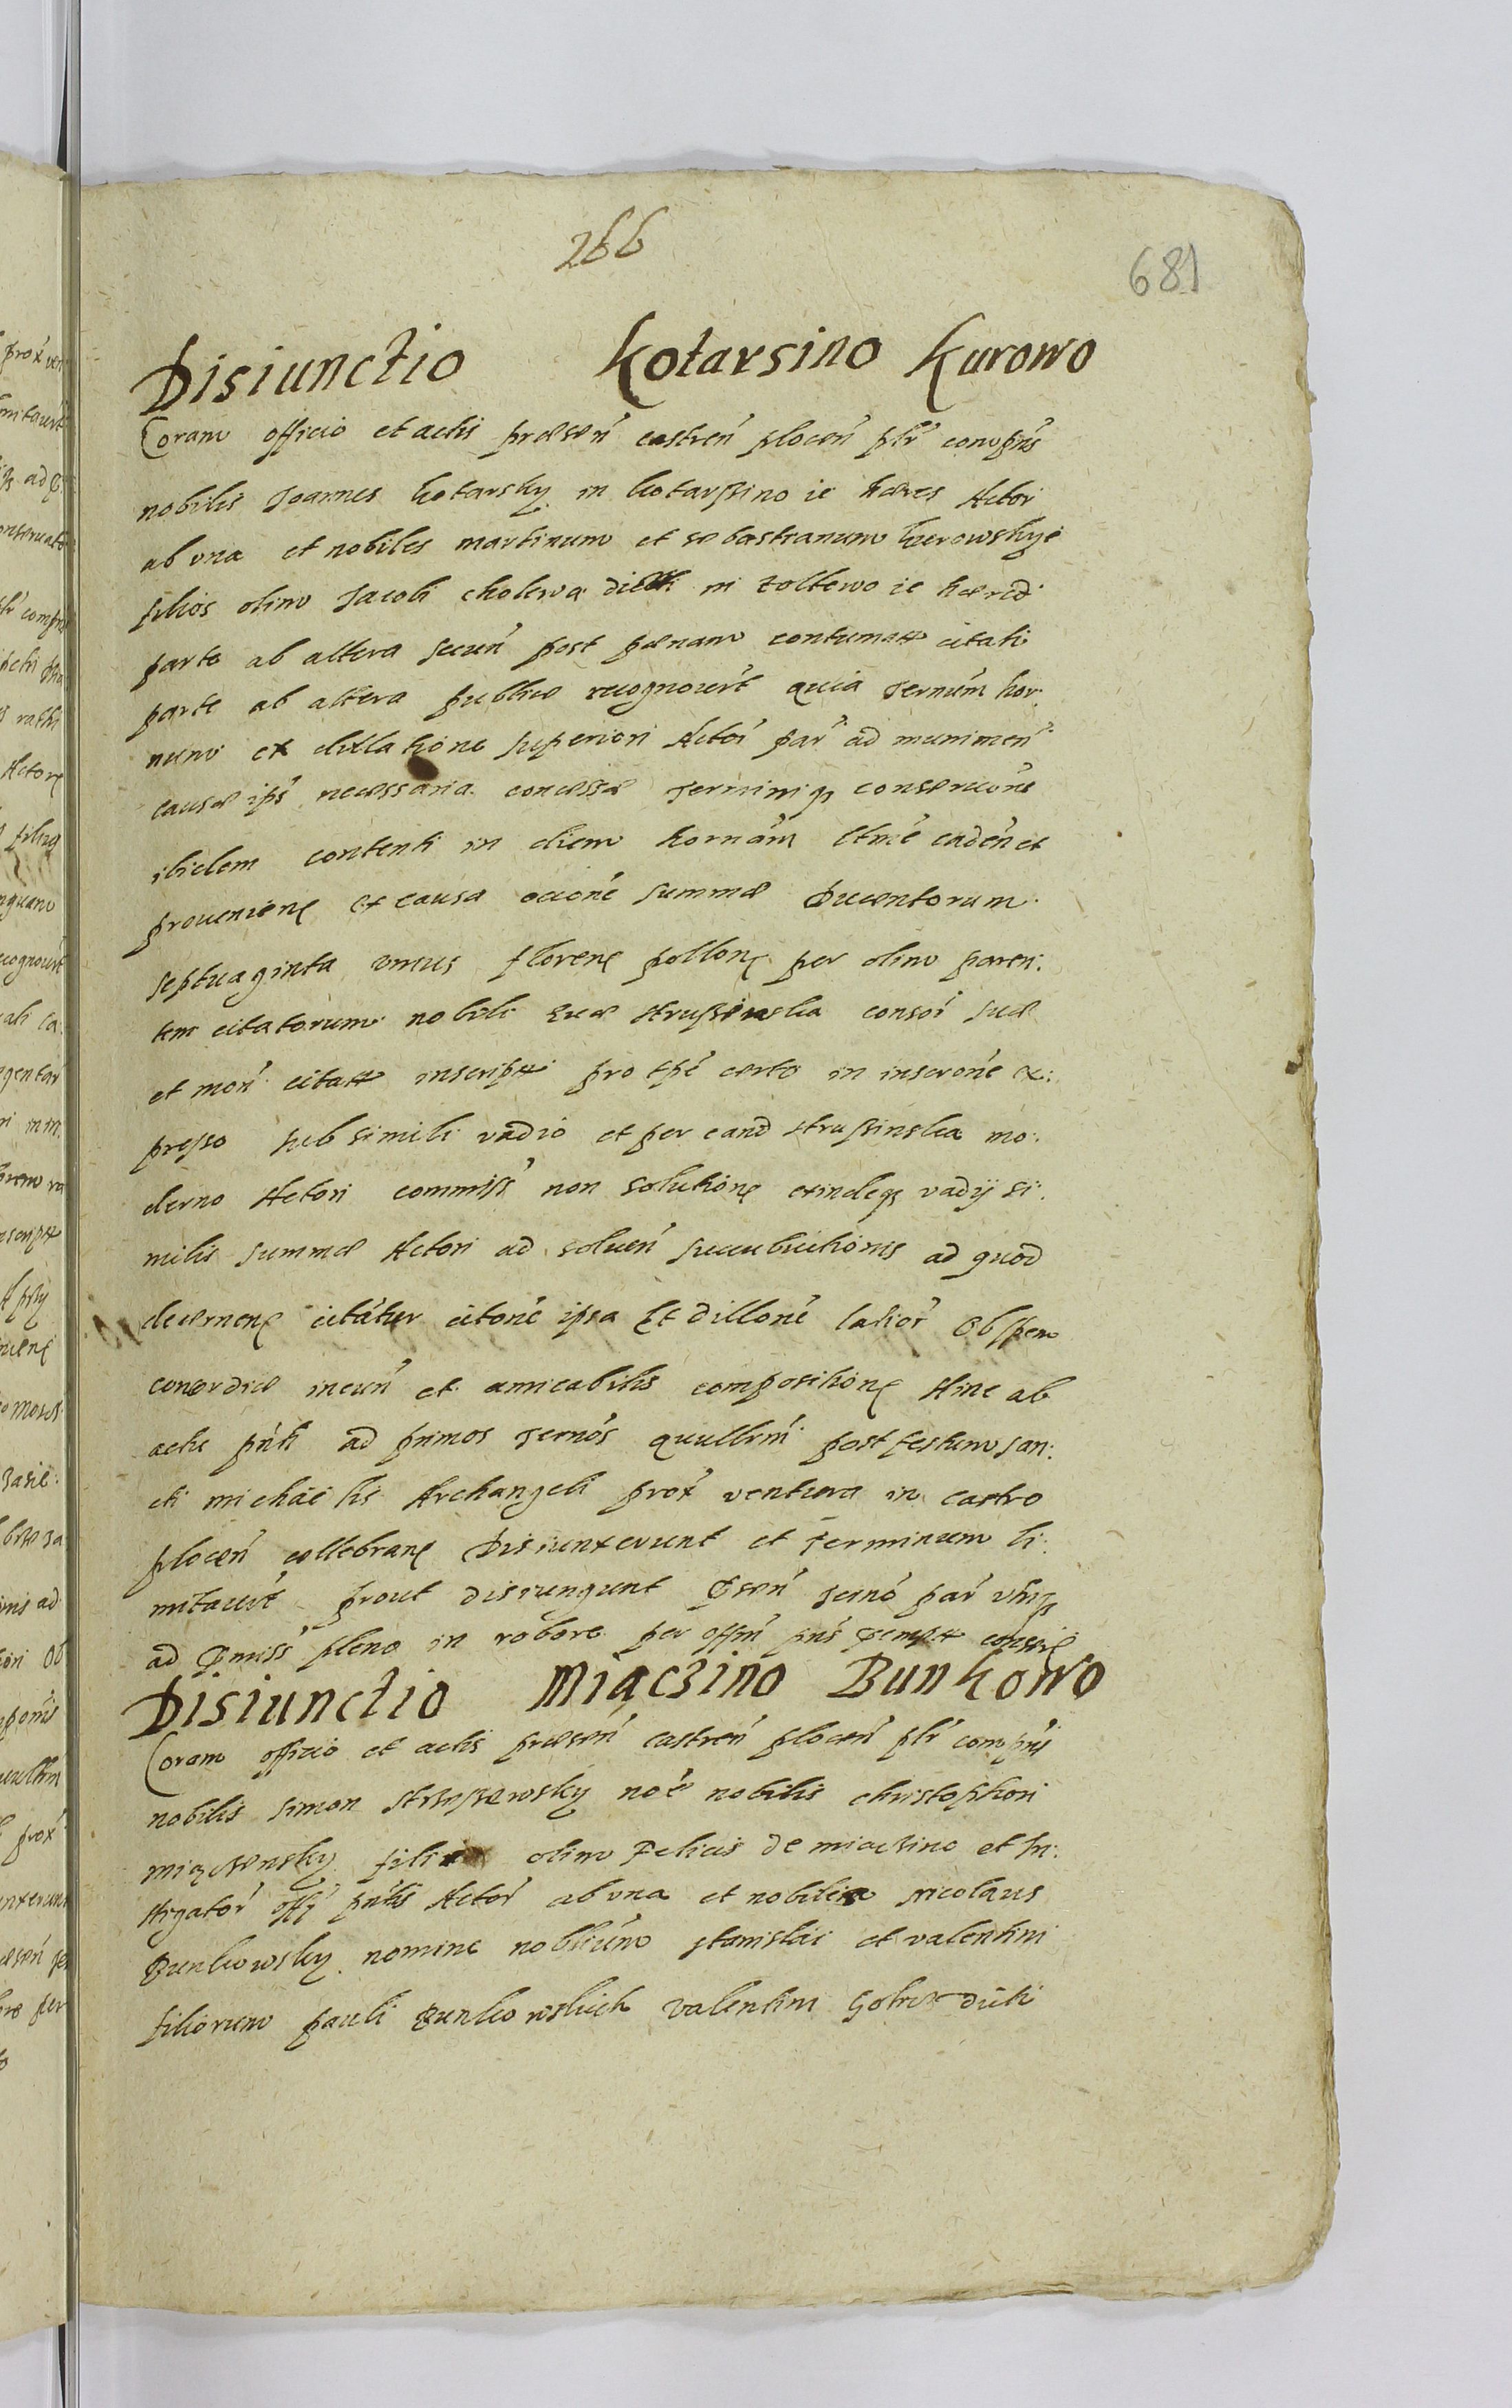 266
681
Disiunctio Kotarsino Kurowo
Coram officio et actis præsen castren plocen plr compns
nobilis Joannes Kotarsky in kotarßino ie hæres Actor
ab vna et nobiles martinum et sebastianum kurowskye
filios olim Jacobi cholewa dicti in zoltewo ie hæred
parte ab altera secun post pænam contumatt citati
parte ab altera publice recognouert quia Termnum hor:
num ex dillatione superiori Actoi par ad munimen
causæ ips necessaria concessæ Terminiq conseruons
ibidem contenti in diem hornam ltme caden et
prouenien ex causa occione summæ Ducentorum
septuaginta vnius floren pollon per olim paren:
tem citatorum nobili Euæ strußinska consoi suæ
et mori citatt inscriptt pro tpe certo in inscrone ex:
presso sub simili vadio et per eand strußinska mo:
derno Actori commiss non solutione exindeq vadij si:
milis summæ Actori ad soluen succubuitionis ad quod
decernen citatur citone ipsa Et dillone latior Ob spem
concordiæ ineun et amicabilis composition Hinc ab
actu pnti ad primos Ternos quullrm post festum san:
cti michaelis Archangeli prox ventura in castro
plocen cellebran Disiunxerunt et Terminum li:
mitauert prout disiungunt psen Terno par vtriq
ad pmiss pleno in robore per offm pns
Disiunctio Miączino Bunkowo
Coram officio et actis præsen castren plocen plr compns
nobilis Simon noe nobilis christophori
miączensky filii olim Felicis de miączino et In:
stigator offy pntis Actor ab vna et nobilis nicolaus
Bunkowsky nomine nobilium stanislai et valentini
filiorum pauli Bunkowskich valentini dicti